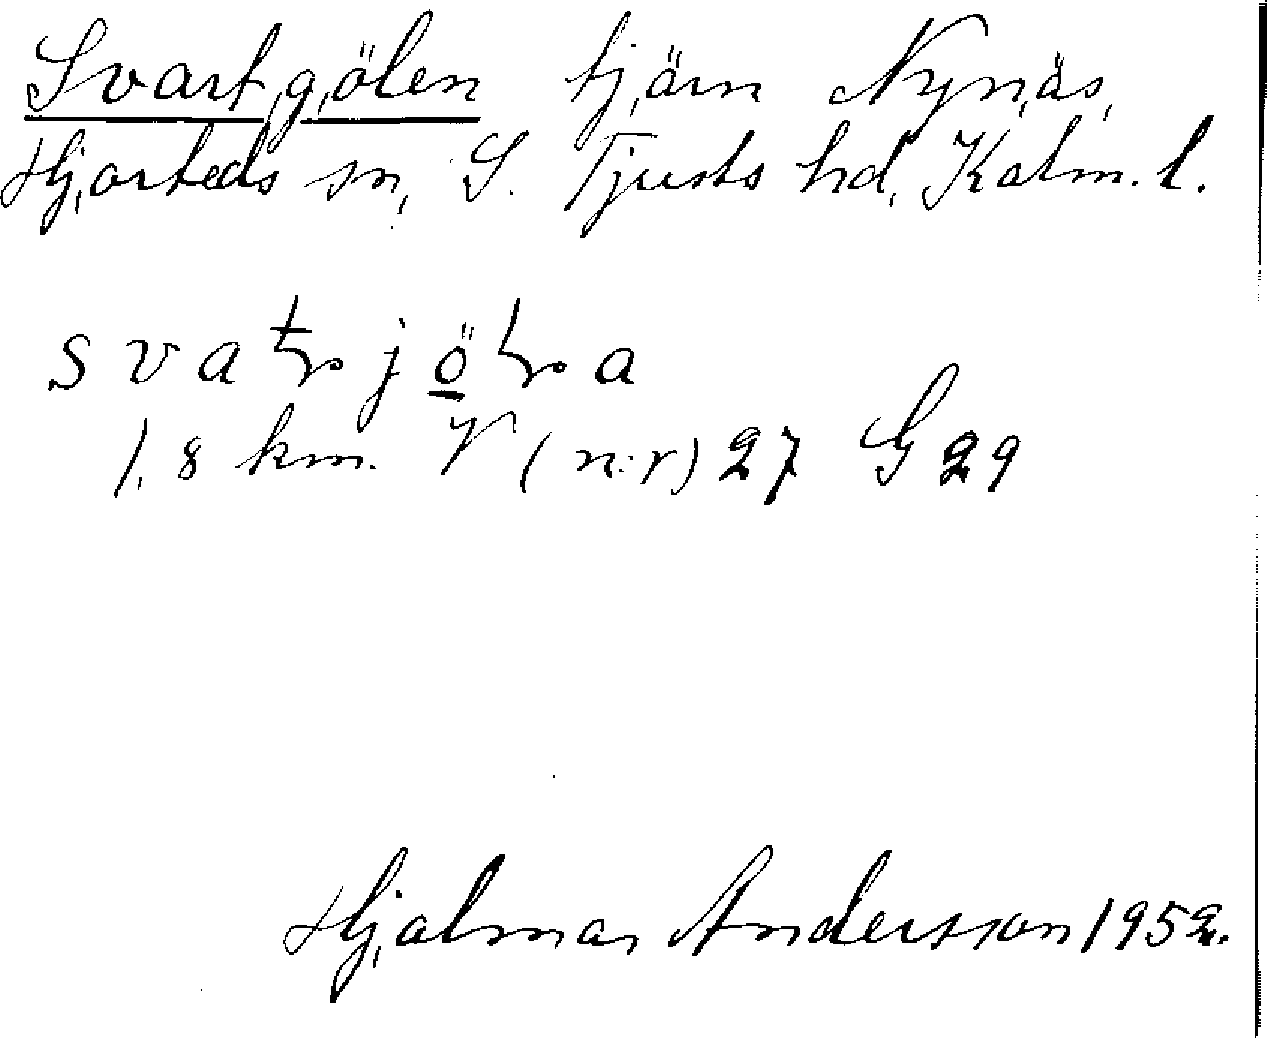 Svartgölen tjärn Nynäs,
Hjorteds sn, S. Tjusts hd, Kalm. l.
1,8 km. V (n:r) 27 G 29
Hjalmar Andersson 1952.